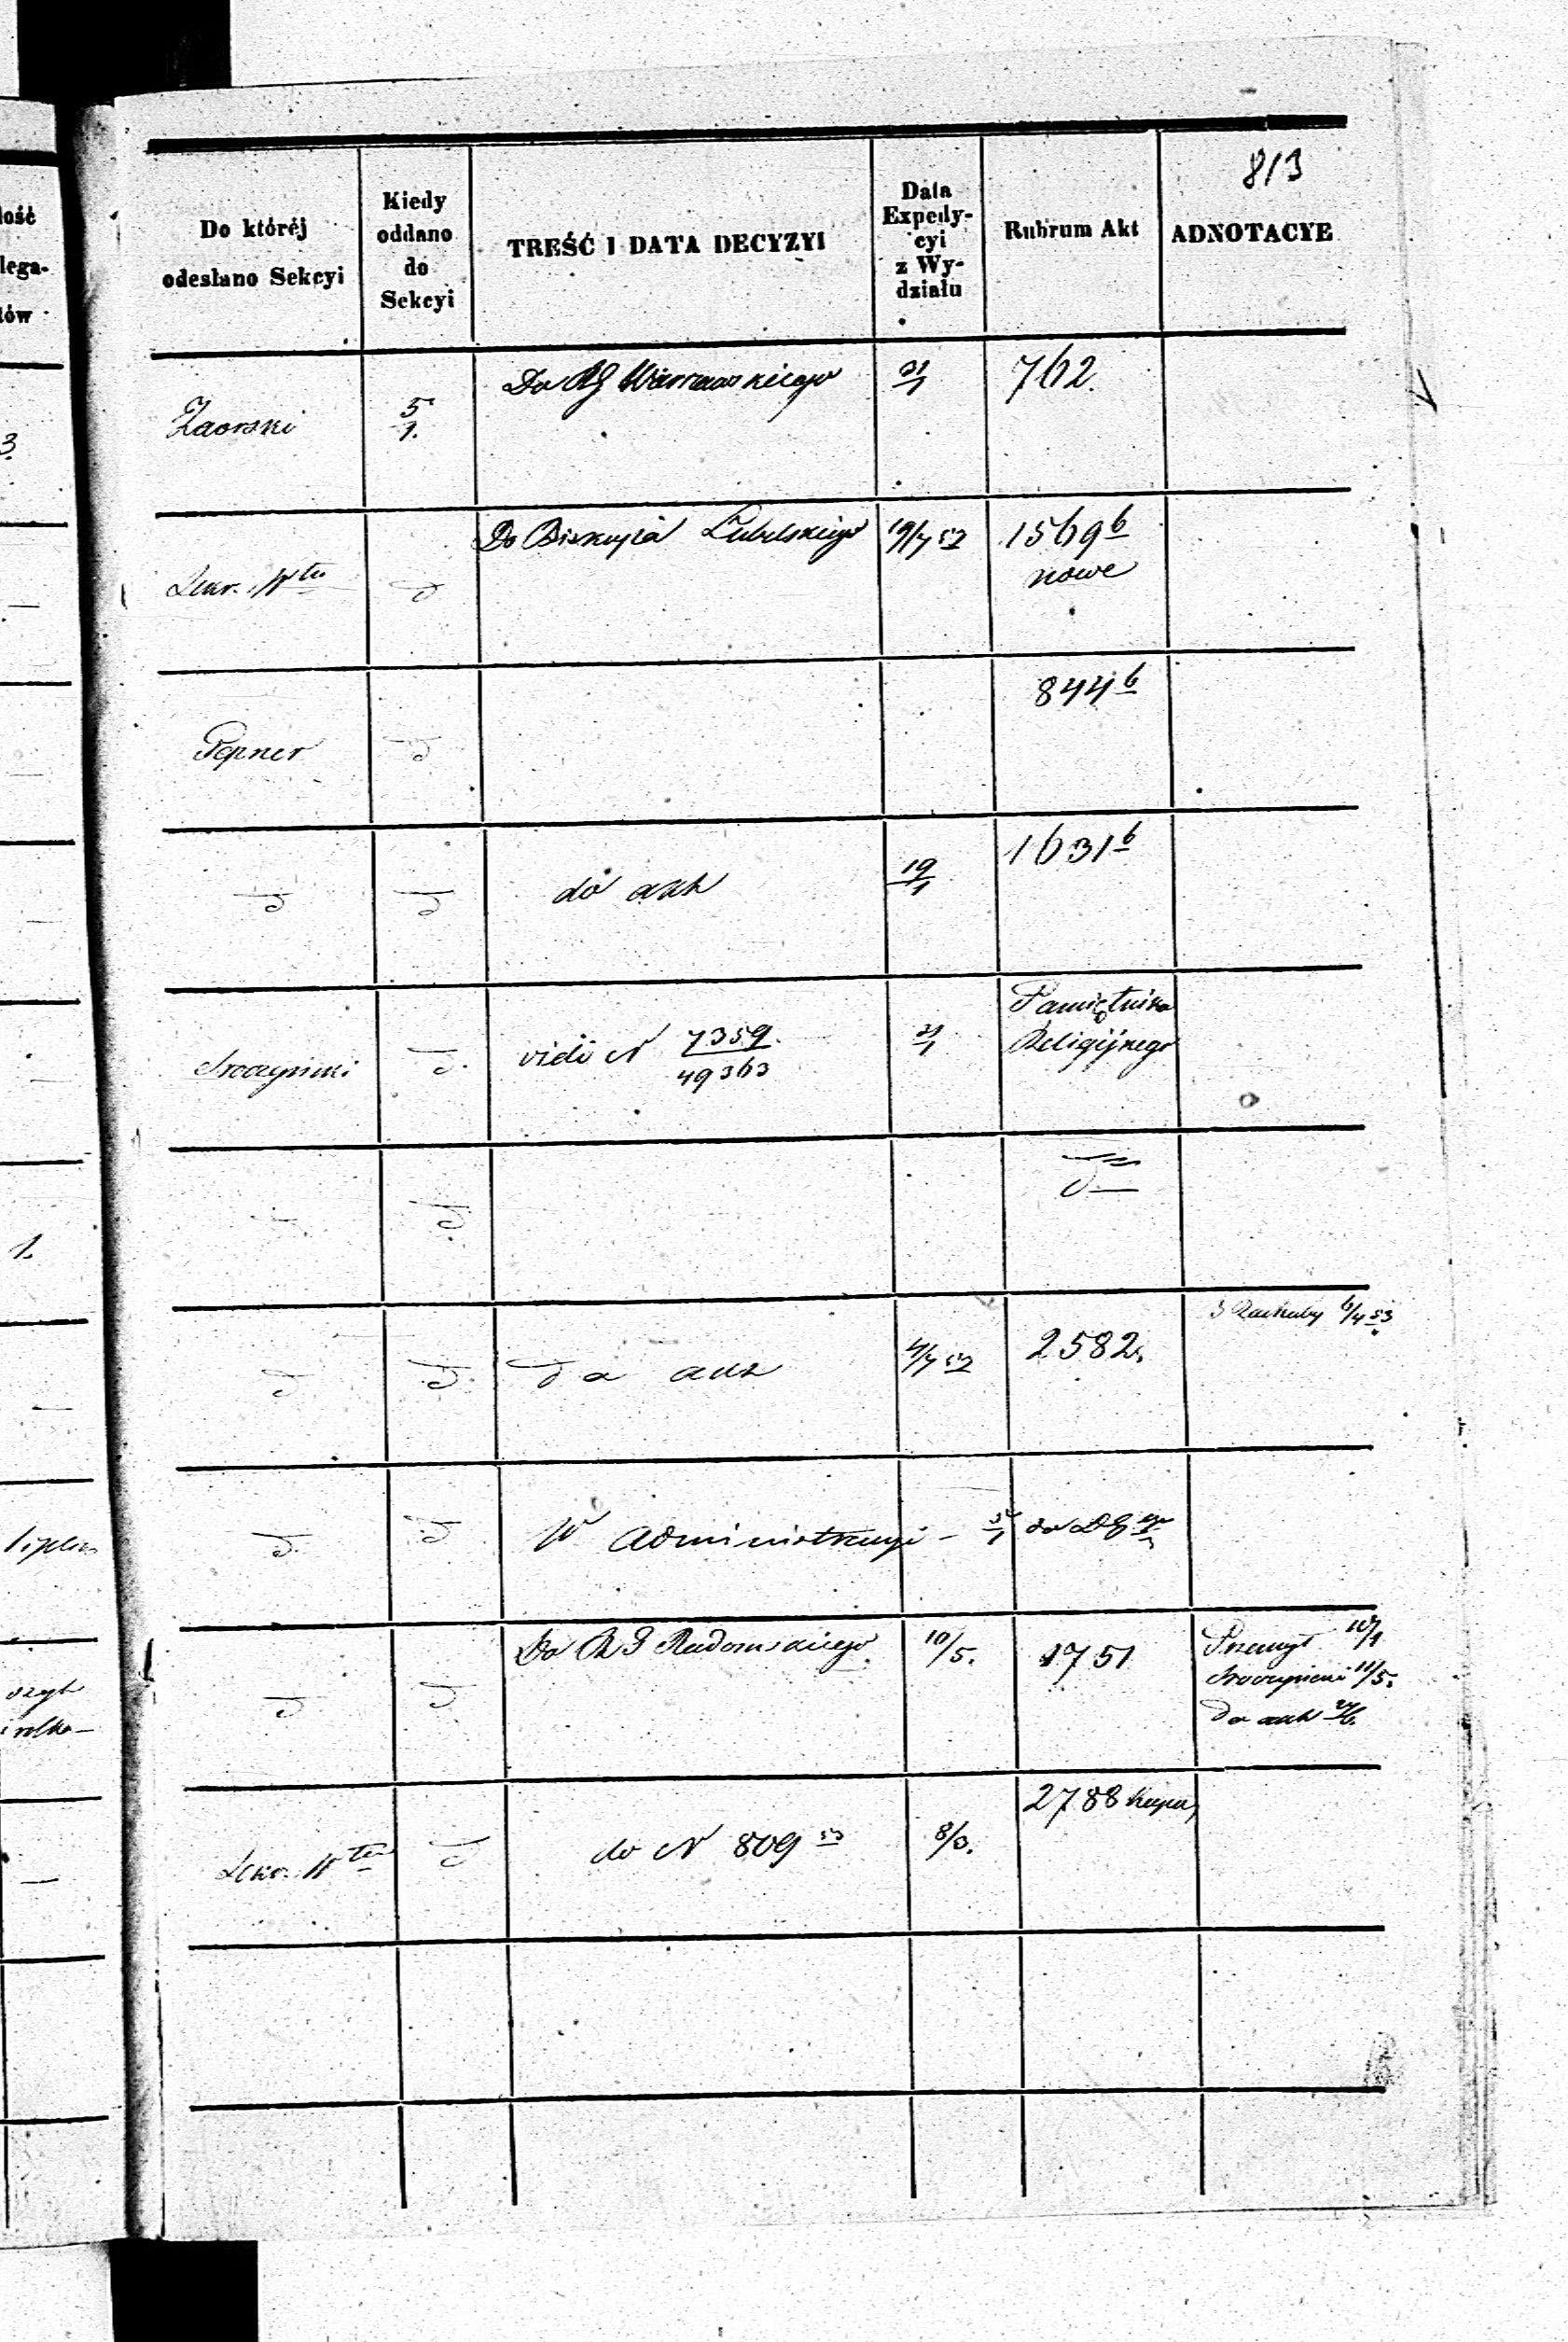 8/3
Do któréj
odesłano Sekcyi
Kiedy
oddano
do
Sekcyi
TREŚĆ I DATA DECYZYI
Data
Expedy-
cyi
z Wy-
działu
Rubrum Akt
ADNOTACYE
Zaorski
5
1.
Do RG Warszawskiego
21
1
762.
Sekr. Wtu
d
Do Biskupa Lubelskiego
19/7 52
1569 b
nowe
Pepner
d
844 b
d
d
do akt
19
1
1631 b
Sroczyński
d.
vide N 7359.
49363
21
1
Pamiętnika
Religijnego
d
d
d
d
da akt
4/7 52
2582.
6/4 53
d.
d
W Administracyi -
do DG
d
d
Do RG Radomskiego.
10/5.
1751
10/1
Sroczyński 11/5.
da akt
Sekr. Wtu
d
do N 809 53
8/3.
2788